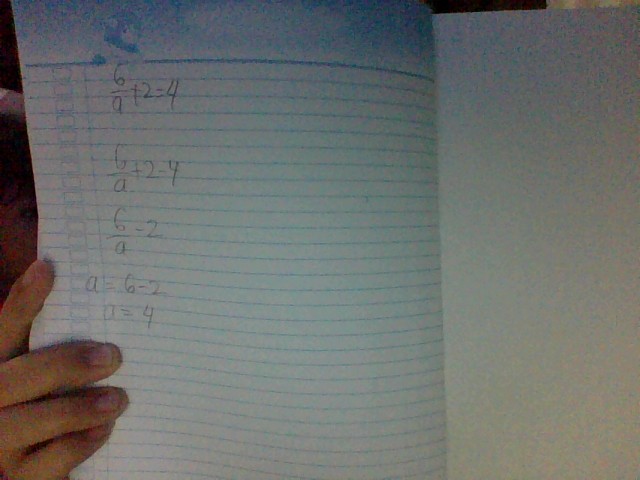 6/a + 2 = 4
6/a + 2 - 4
6/a - 2
a = 6 - 2
a = 4